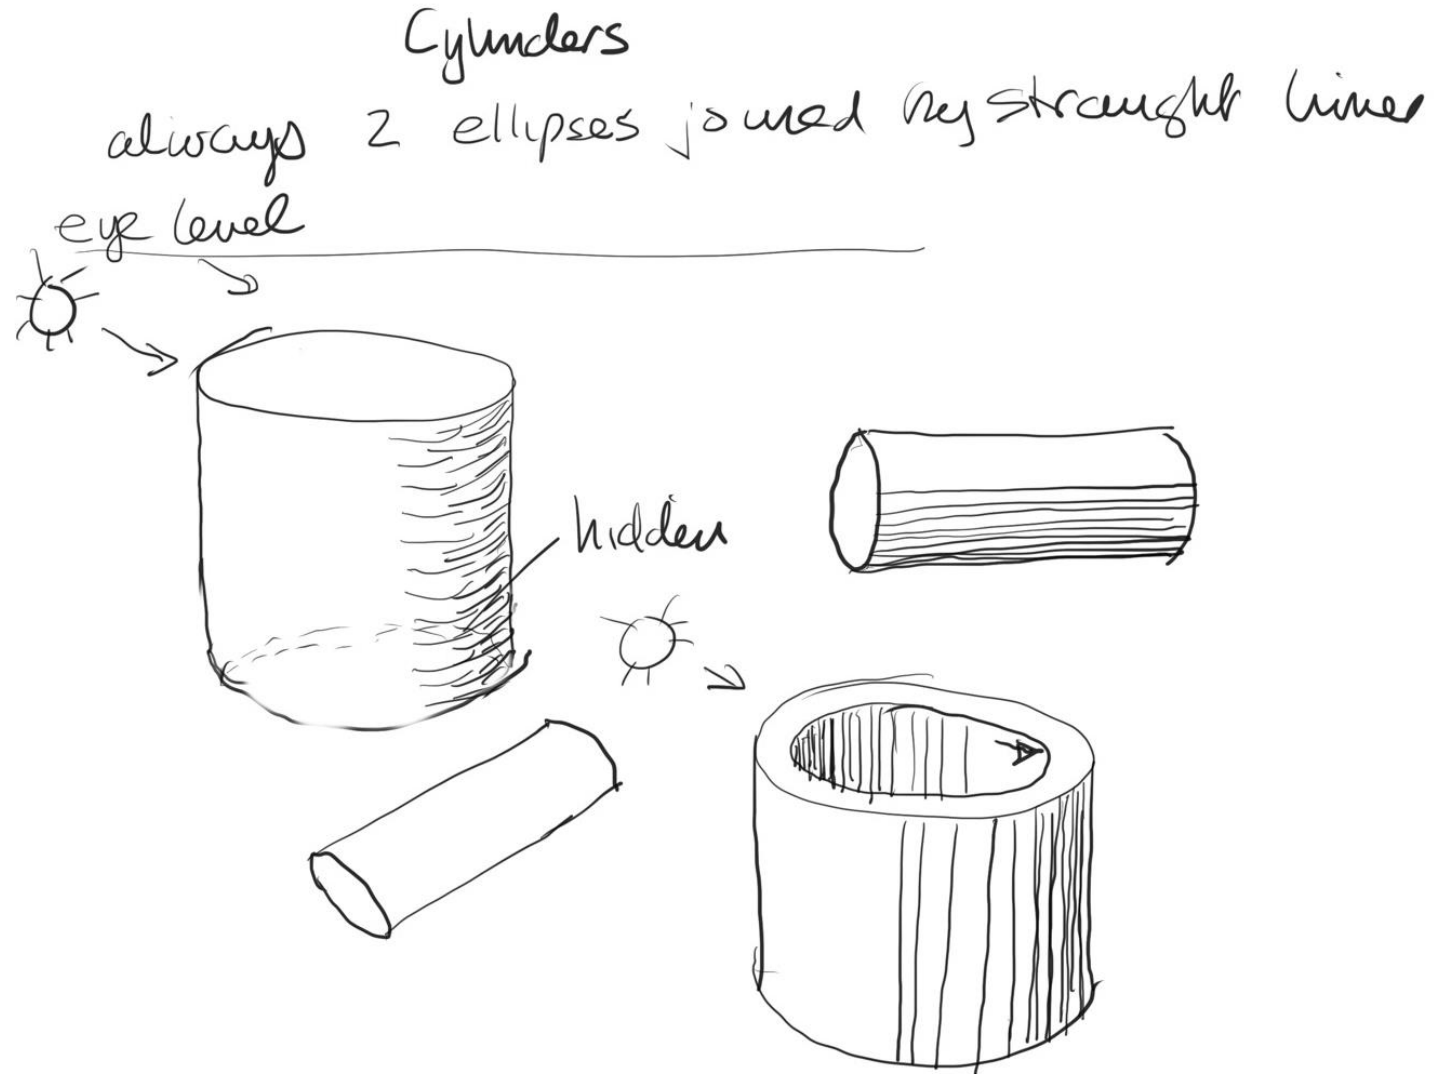 Cylinders
always 2 ellipses joined by straight lines
eye level
hidden